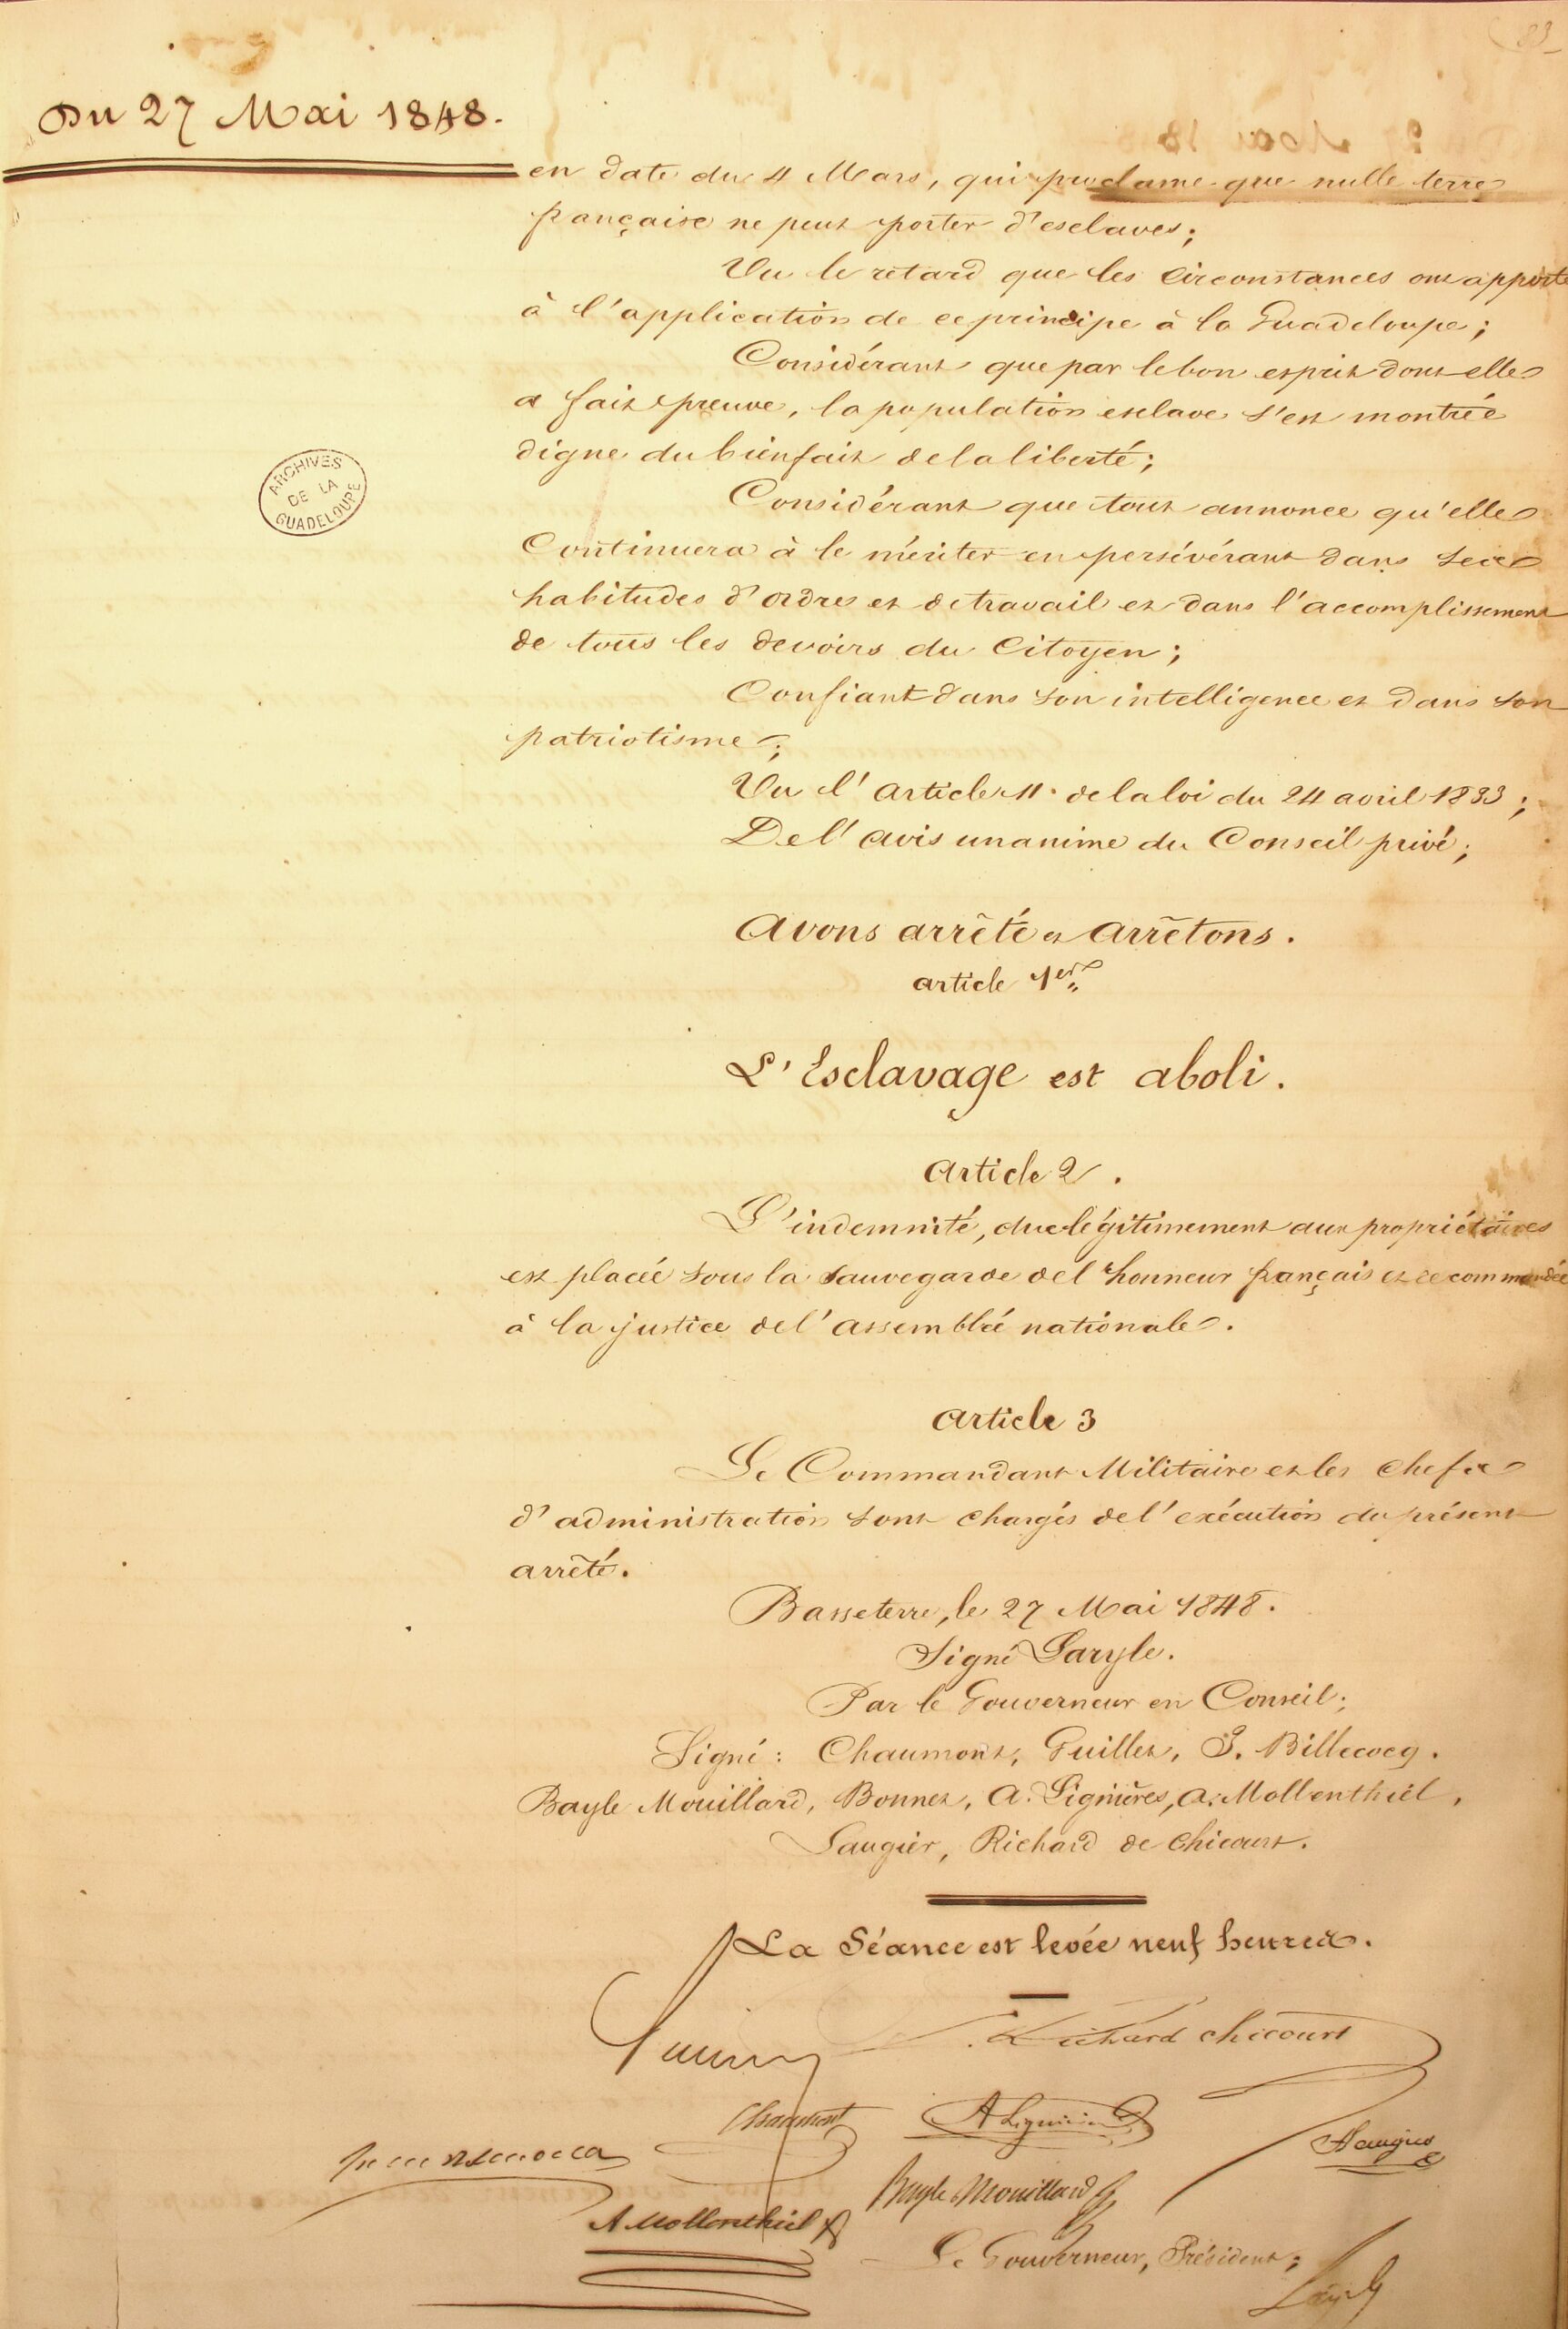 83
Du 27 Mai 1848.
en date du 4 Mars, qui proclame que nulle terre
française ne peut porter d'esclaves;
Vu le retard que les Circonstances ont apporté
à l'application de ce principe à la Guadeloupe;
Considérant que par le bon esprit dont elle
a fait preuve, la population esclave s'est montrée
digne du bienfait de la liberté;
ARCHIVES
DE LA
GUADELOUPE
Considérant que tout annonce qu'elle
Continuera à le mériter en persévérant dans ses
habitudes d'ordre et de travail et dans l'accomplissement
de tous les devoirs du Citoyen;
Confiant dans son intelligence et dans son
patriotisme;
Vu l'article 11. de la loi du 24 avril 1833;
De l'avis unanime du Conseil privé;
Avons arrêté et arrêtons.
article 1er.
L'Esclavage est aboli.
Article 2.
L'indemnité, due légitimement aux propriétaires
est placée sous la sauvegarde de l'honneur français et recommandée
à la justice de l'assemblée nationale.
Article 3
Le Commandant Militaire et les Chefs
d'administration sont chargés de l'exécution du présent
arrêté.
Basseterre, le 27 Mai 1848.
Signé Layrle.
Par le Gouverneur en Conseil;
Signé: Chaumont, Guillet, J. Billecocq.
Bayle Mouillard, Bonnet, A. Lignières, A. Mollenthiel,
Laugier, Richard de Chicourt.
La Séance est levée neuf heures.
Richard Chicourt
Chaumont
A Lignières
Laugier
Bayle Mouillard
A Mollenthiel
Le Gouverneur, Président;
Layrle